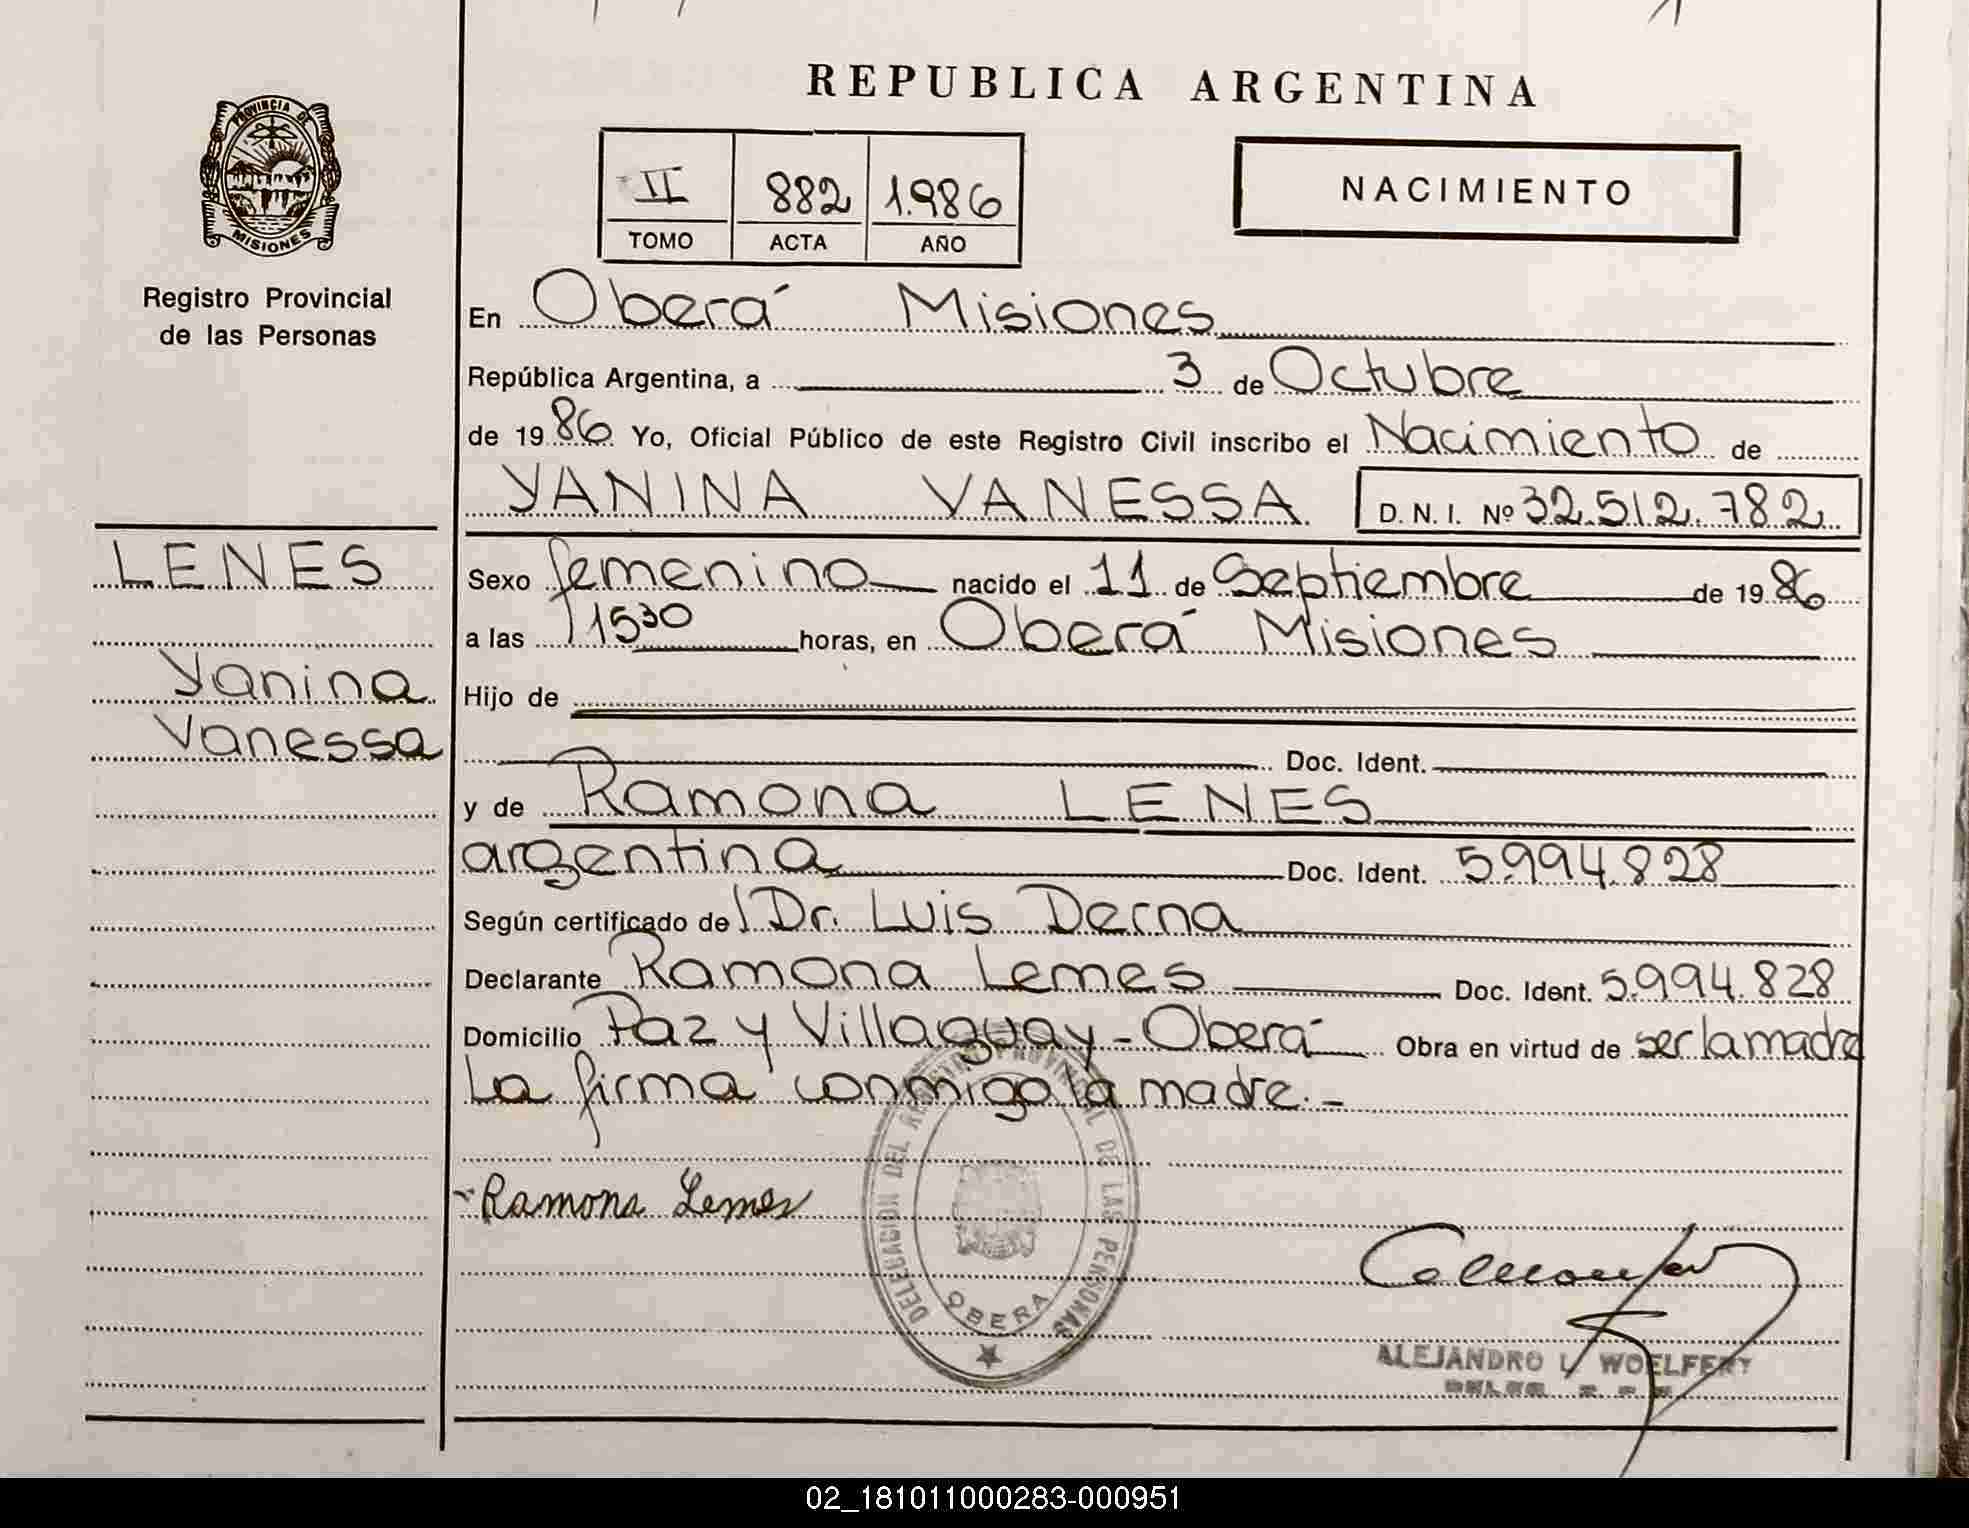 REPUBLICA ARGENTINA
PROVINCIA DE
MISIONES
Registro Provincial
de las Personas
II 882 1.986
TOMO ACTA AÑO
NACIMIENTO
En Oberá Misiones
República Argentina, a 3 de Octubre
de 1986 Yo, Oficial Público de este Registro Civil inscribo el Nacimiento de
YANINA VANESSA D. N. I. Nº 32.512.782
LENES
Yanina
Vanessa
Sexo femenino nacido el 11 de Septiembre de 1986
a las 1530 horas, en Oberá Misiones
Hijo de
Doc. Ident.
y de Ramona LENES
argentina Doc. Ident. 5.994.828
Según certificado de Dr. Luis Derna
Declarante Ramona Lemes Doc. Ident. 5.994.828
Domicilio Paz y Villaguay - Oberá Obra en virtud de ser la madre
La firma conmigo la madre.-
Ramona Lemes
DELEGACION DEL REGISTRO PROVINCIAL DE LAS PERSONAS
OBERA
ALEJANDRO L WOELFERT
02_181011000283-000951